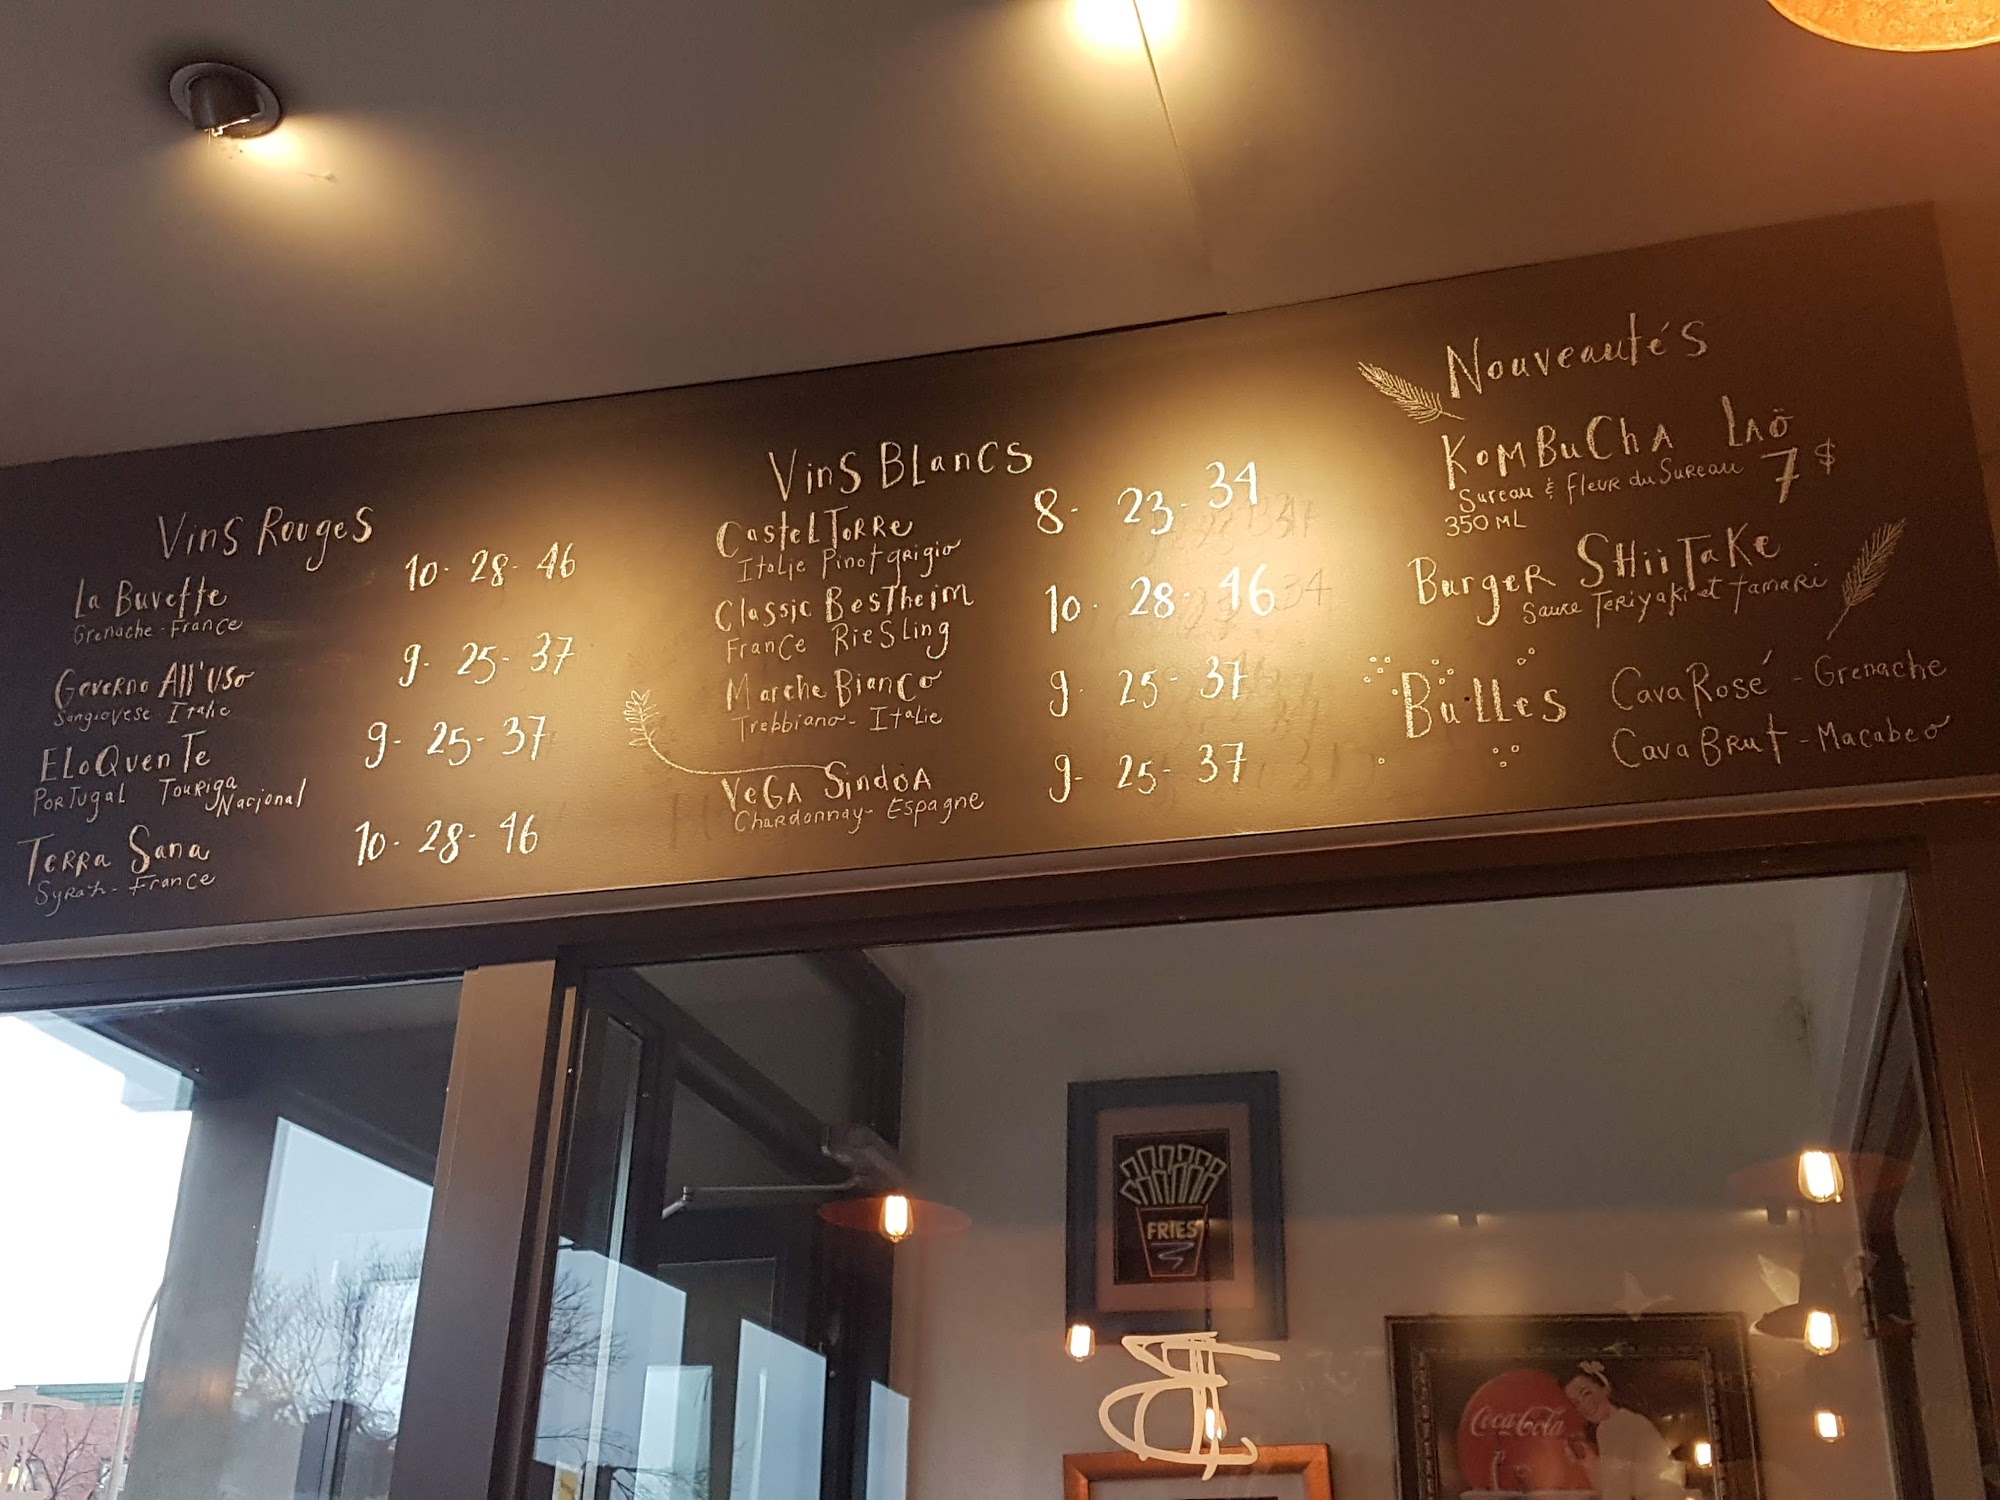 Vins Rouges
La Buvette 10 - 28 - 46
Grenache - France
Governo All'Uso 9 - 25 - 37
Sangiovese - Italie
Eloquente 9 - 25 - 37
Portugal Touriga
Nacional
Terra Sana 10 - 28 - 46
Syrah - France
Vins Blancs
Castel Torre 8 - 23 - 34
Italie Pinot grigio
Classic Bestheim 10 - 28 - 46
France Riesling
Marche Bianco 9 - 25 - 37
Trebbiano - Italie
Vega Sindoa 9 - 25 - 37
Chardonnay - Espagne
Nouveautés
Kombucha Laö
Sureau & Fleur du Sureau 7$
350 ML
Burger Shiitake
Sauce Teriyaki et tamari
Bulles
Cava Rosé - Grenache
Cava Brut - Macabeo
FRIES
Coca-Cola